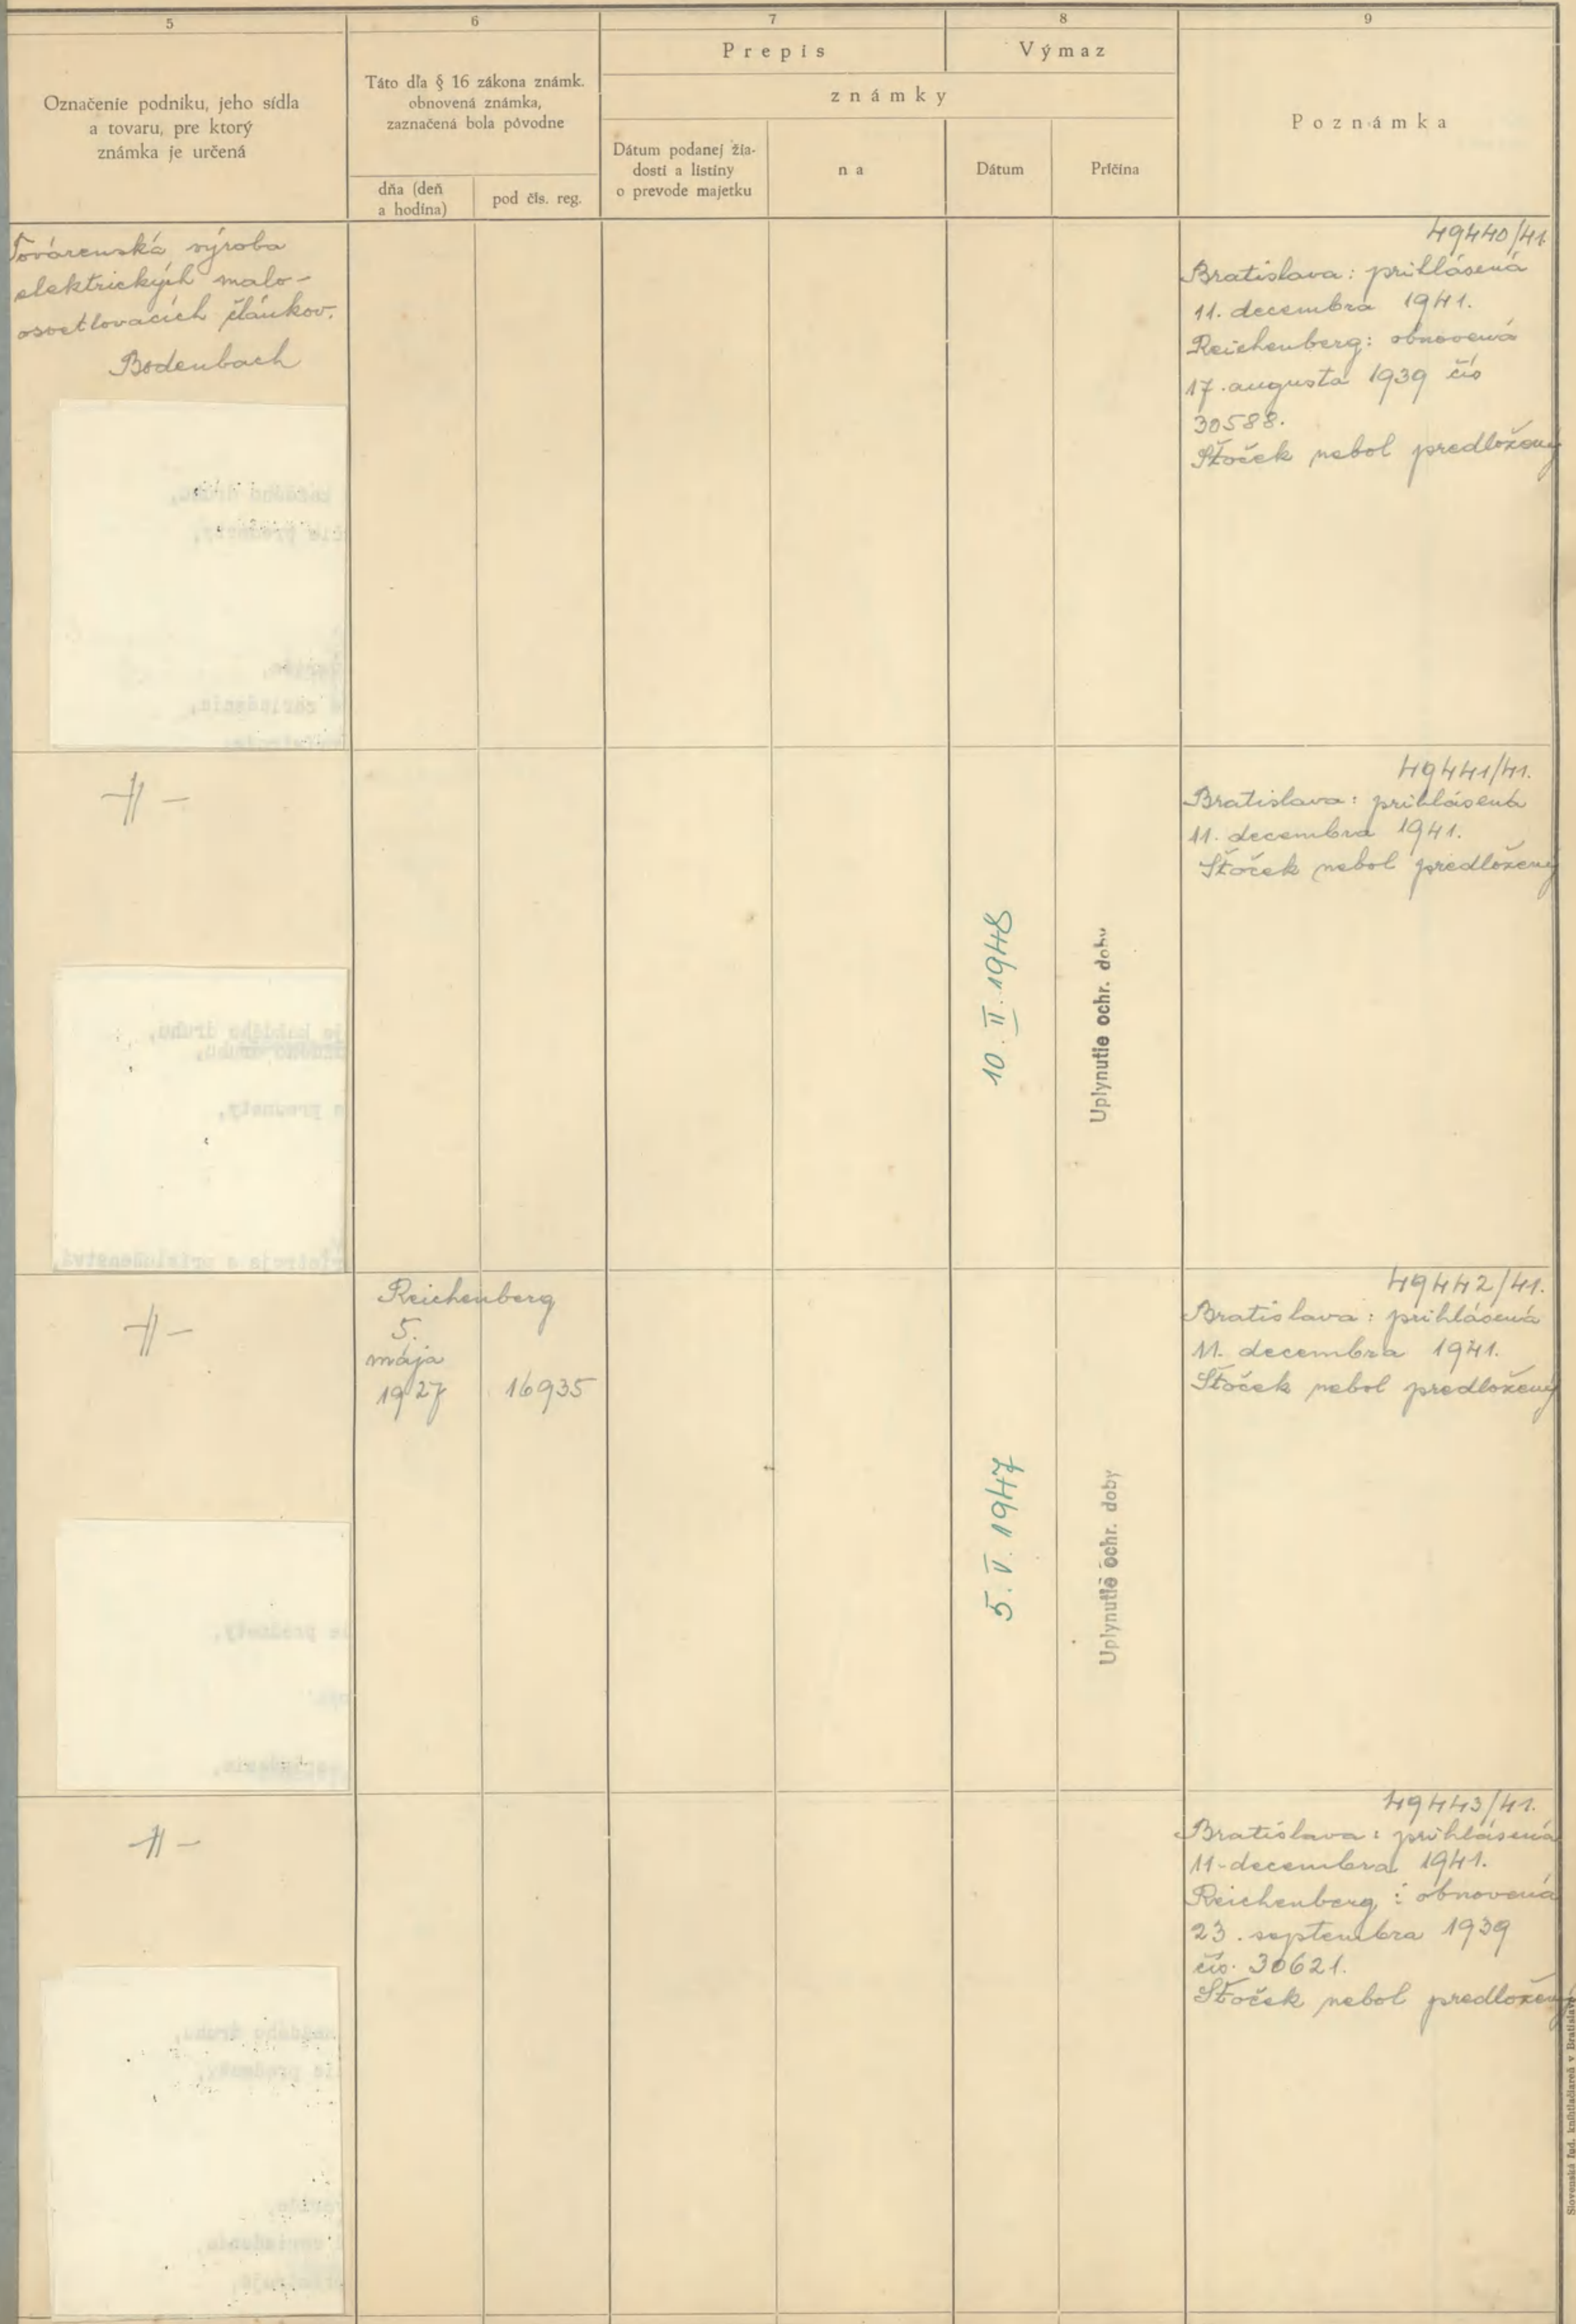 5
6
7
8
9
Označenie podniku, jeho sídla
a tovaru, pre ktorý
známka je určená
Táto dľa § 16 zákona známk.
obnovená známka,
zaznačená bola pôvodne
dňa (deň
a hodina)
pod čís. reg.
Prepis
Výmaz
známky
Dátum podanej žia-
dosti a listiny
o prevode majetku
na
Dátum
Príčina
Poznámka
Továrenská výroba
elektrických malo-
osvetlovacích článkov.
Bodenbach
49440/41
Bratislava: prihlásená
11. decembra 1941.
Reichenberg: obnovená
17. augusta 1939 čís
30588.
Štoček nebol predložený
-||-
10. II. 1948
Uplynutie ochr. doby
49441/41.
Bratislava: prihlásená
11. decembra 1941.
Štoček nebol predložený
-||-
Reichenberg
5.
mája
1927
16935
5. V. 1947
Uplynutie ochr. doby
49442/41.
Bratislava: prihlásená
11. decembra 1941.
Štoček nebol predložený
-||-
49443/41.
Bratislava: prihlásená
11. decembra 1941.
Reichenberg: obnovená
23. septembra 1939
čís. 30621.
Štoček nebol predložený
Slovenská ľud. kníhtlačiareň v Bratislave